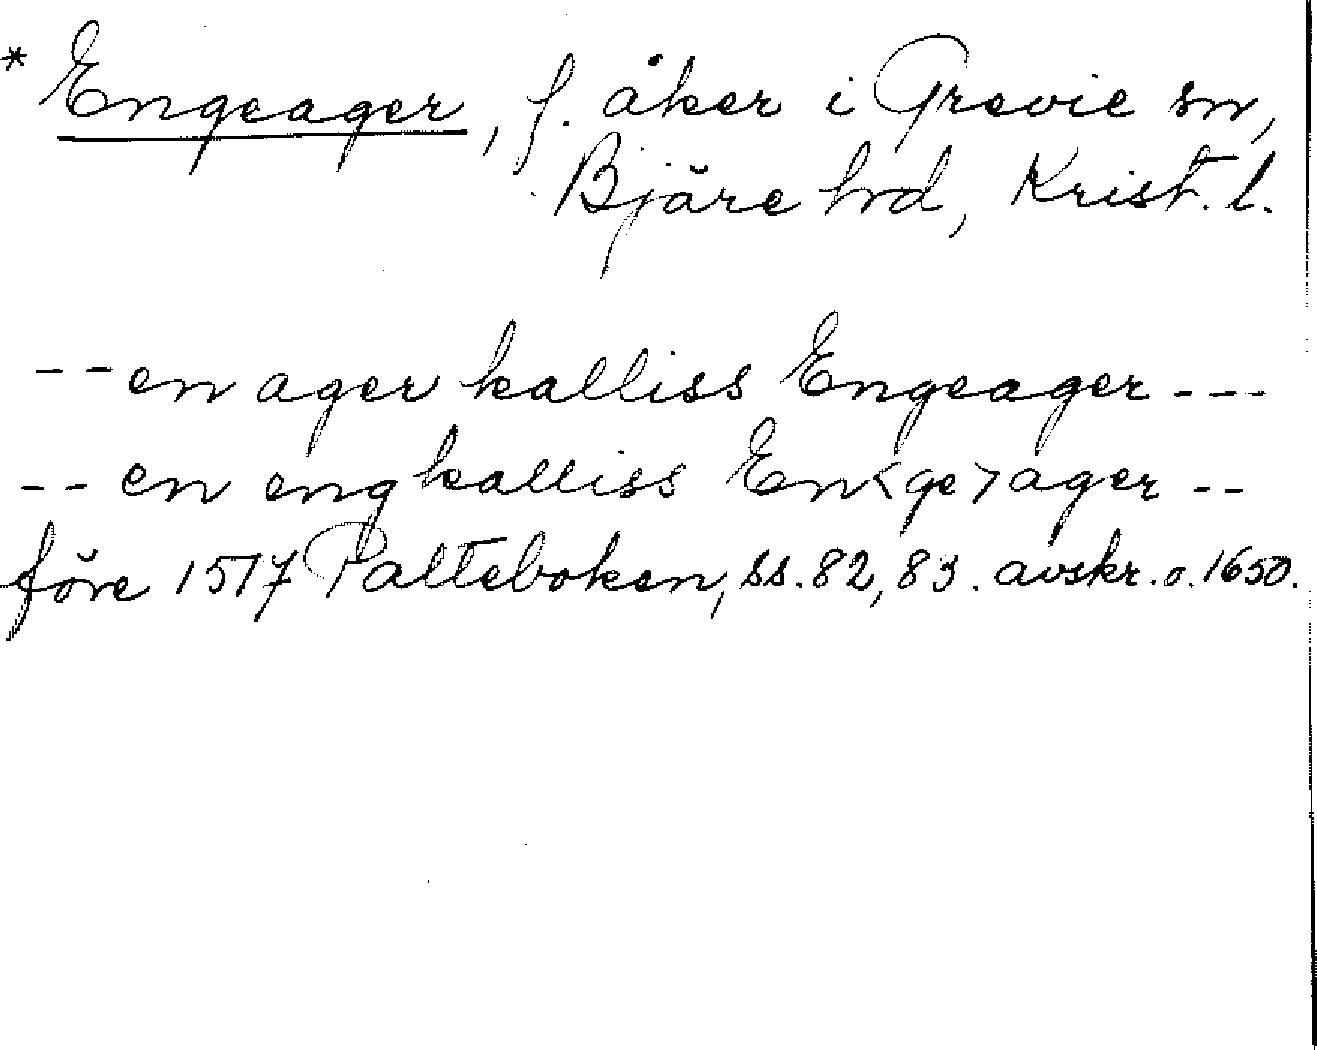 * Engeager, f. åker i Grevie sn,
Bjäre hrd, Krist. l.
-- en ager kalliss Engeager ---
-- en eng kalliss En<ge>ager --
före 1517 Palteboken, ss. 82, 83. avskr. o. 1650.